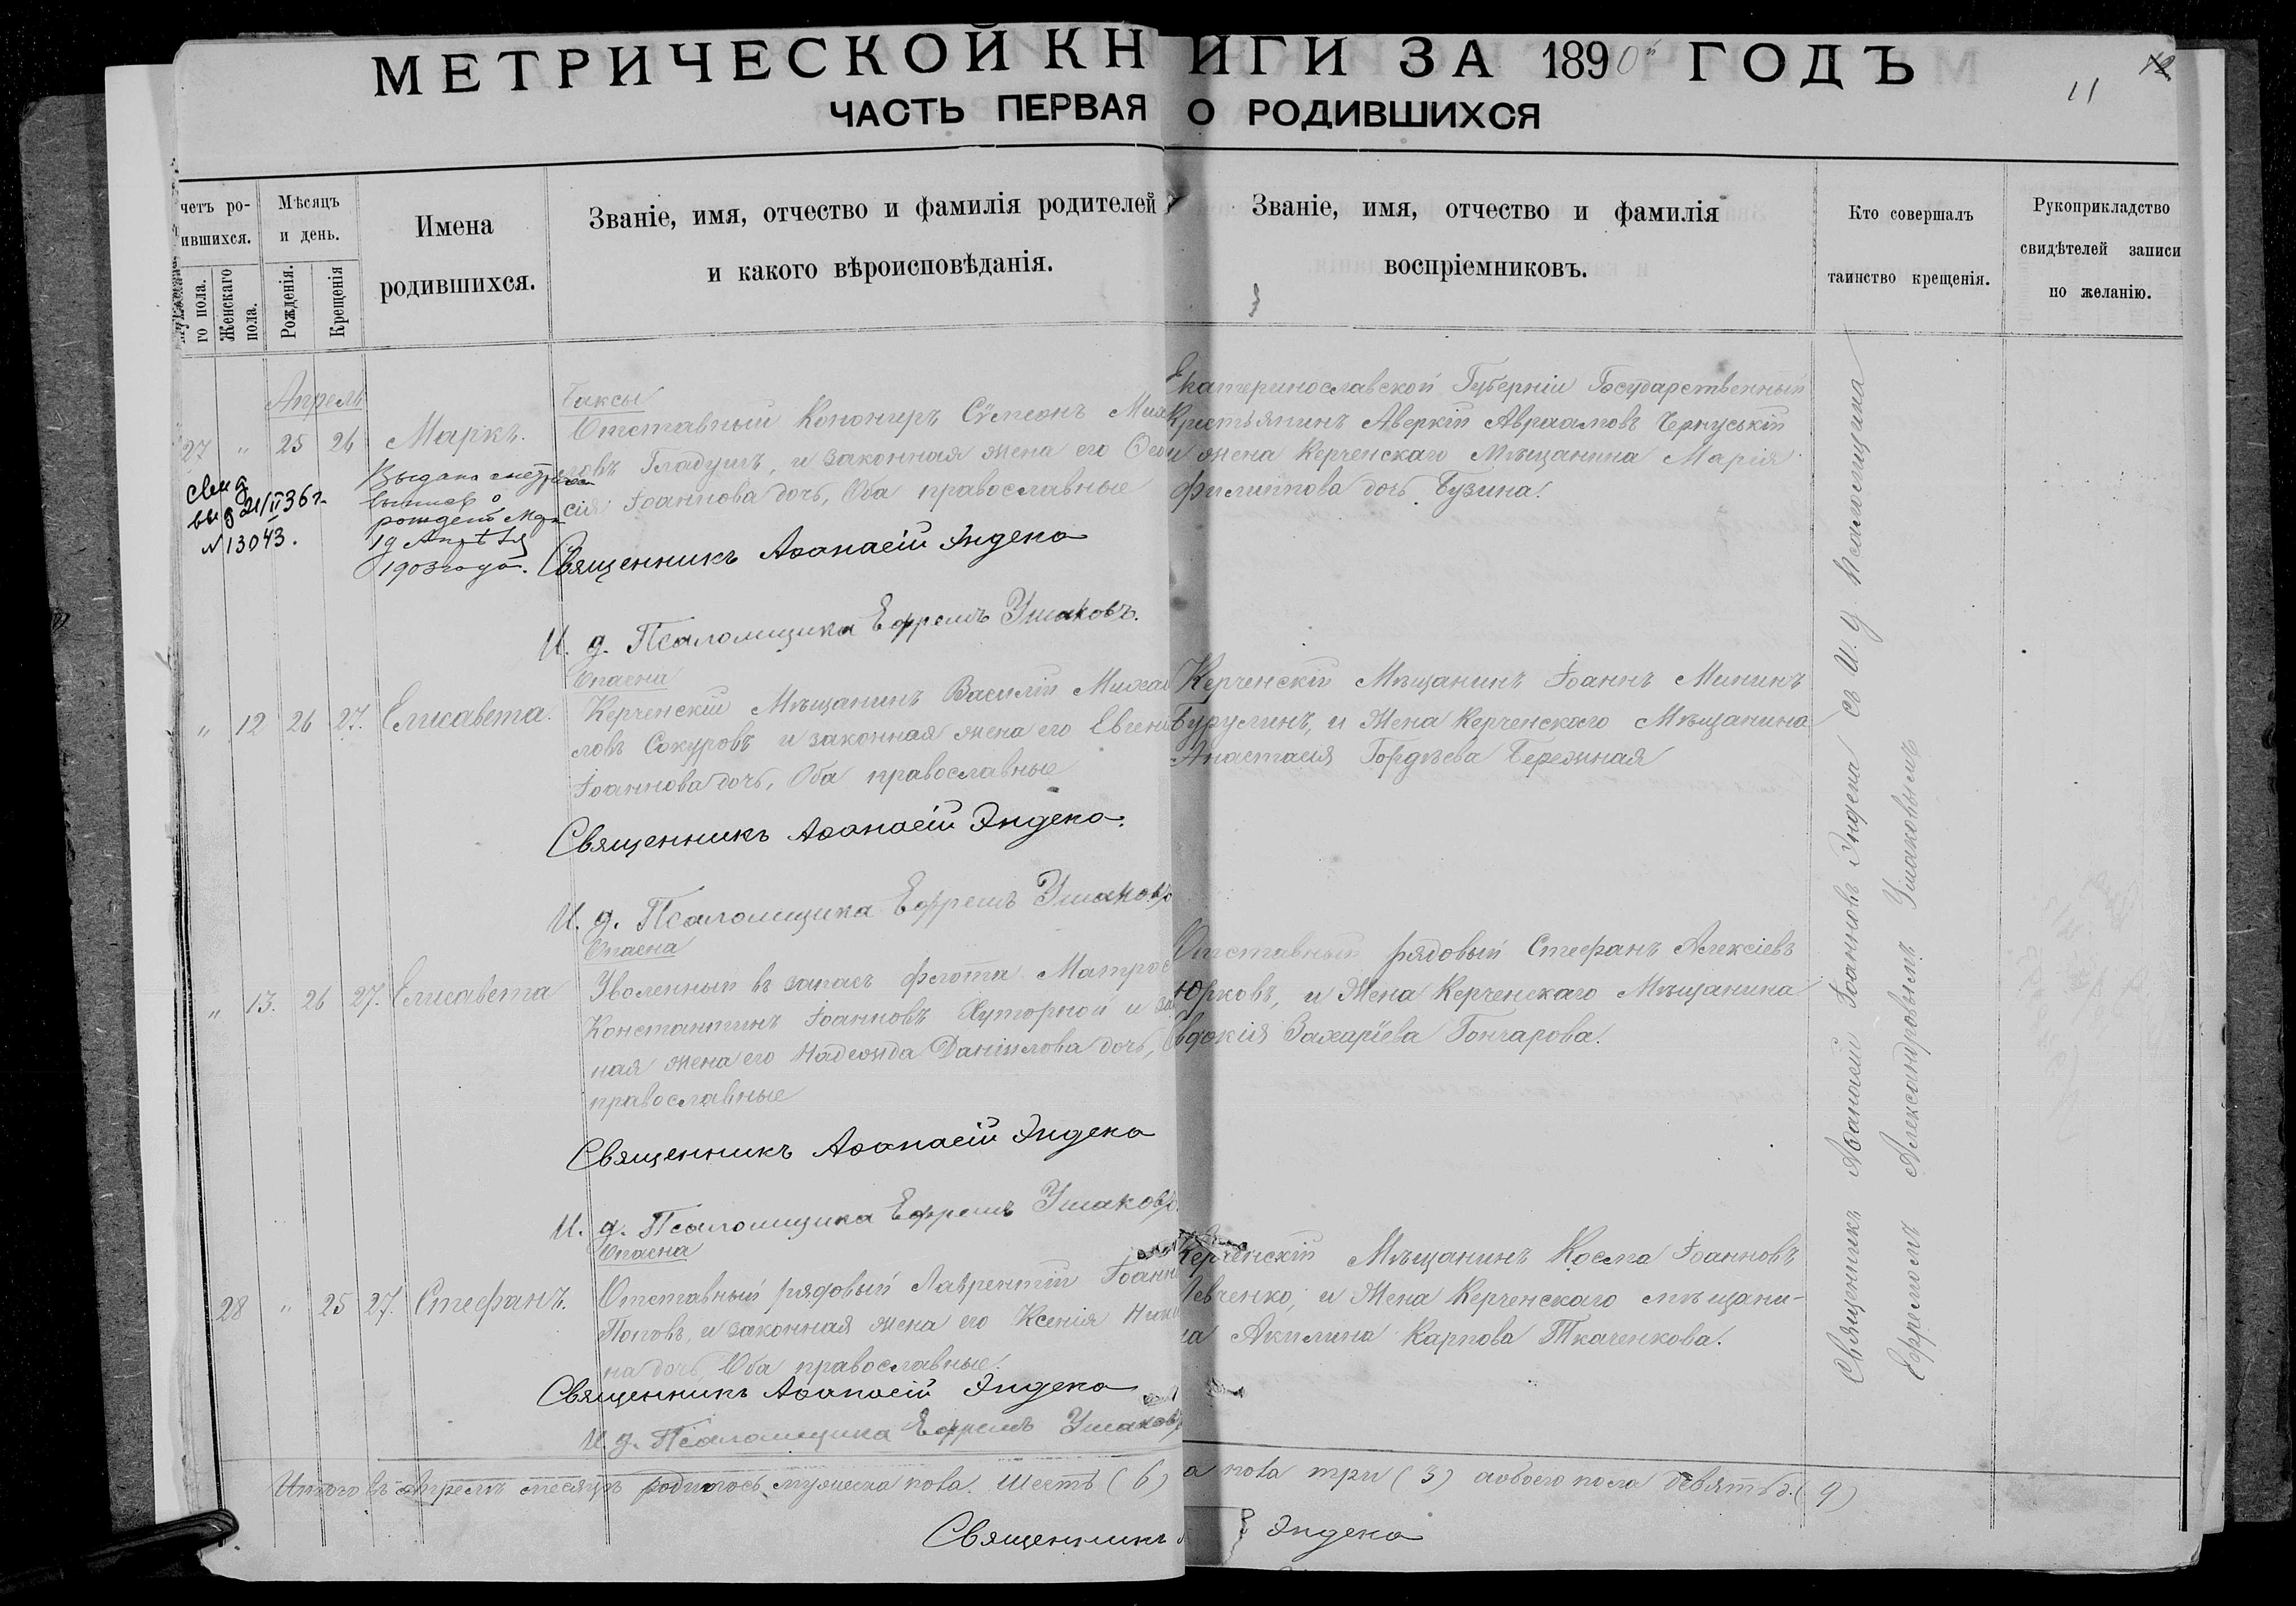 МЕТРИЧЕСКОЙ КНИГИ ЗА 1890й ГОДЪ
11
12
ЧАСТЬ ПЕРВАЯ О РОДИВШИХСЯ
четъ ро-
ившихся.
го пола.
Женскаго
пола.
Мѣсяцъ
и день.
Рожденія.
Крещенія
Имена
родившихся.
Званіе, имя, отчество и фамилія родителей
и какого вѣроисповѣданія.
Званіе, имя, отчество и фамилія
воспріемниковъ.
Кто совершалъ
таинство крещенія.
Рукоприкладство
свидѣтелей записи
по желанію.
Апрель
27 " 25 26 Маркъ.
свид
выд 21/II 36 г.
N 13043.
Выдана
рожден
19
1903 года.
Баксы
Отставный Канониръ Сѵмеонъ Мих
ловъ Гладушъ, и законная жена его
сія Іоаннова дочь, Оба православные
Екатеринославской Губерніи Государственный
Крестьянинъ Аверкій Авраамовъ
и жена Керченскаго Мѣщанина Марія
Филиппова дочь Бузина.
Священникъ Аѳанасій Эндека
И. д. Псаломщика Ефремъ Ушаковъ.
" 12 26 27. Елисавета.
Опасна
Керченскій Мѣщанинъ Василій Михаи
ловъ Сокуровъ и законная жена его Евгені
Іоаннова дочь, Оба православные
Керченскій Мѣщанинъ Іоаннъ Мининъ
Бурулинъ, и Жена Керченскаго Мѣщанина
Анастасія Гордѣева Бережная
Священникъ Аѳанасій Эндека.
И. д. Псаломщика Ефремъ Ушаковъ
" 13. 26 27. Елисавета
Опасна
Уволенный въ запасъ флота Матрос
Константинъ Іоанновъ Хуторной и за
ная жена его Надежда Даніилова дочь,
православные
Отставный рядовый Стефанъ Алексіевъ
Юрковъ, и Жена Керченскаго Мѣщанина
Евдокія Захаріева Гончарова.
Священникъ Аѳанасій Эндека
И. д. Псаломщика Ефремъ Ушаковъ.
28 " 25 27. Стефанъ.
Опасна
Отставный рядовый Лаврентій Іоанн
Поповъ, и законная жена его Ксенія
на дочь, Оба православные.
Керченскій Мѣщанинъ Косма Іоанновъ
Левченко, и Жена Керченскаго мѣщани-
на Акилина Карпова Ткаченкова.
Священникъ Аѳанасій Эндека
И. д. Псаломщика Ефремъ Ушаковъ
Священникъ Аѳанасій Іоанновъ Эндека съ И. д. псаломщика
Ефремомъ Александровымъ Ушаковымъ
Итого въ апрелѣ месяцѣ родилось мужеска пола. шесть (6) а пола три (3) а обоего пола девять. (9)
Священникъ Эндека